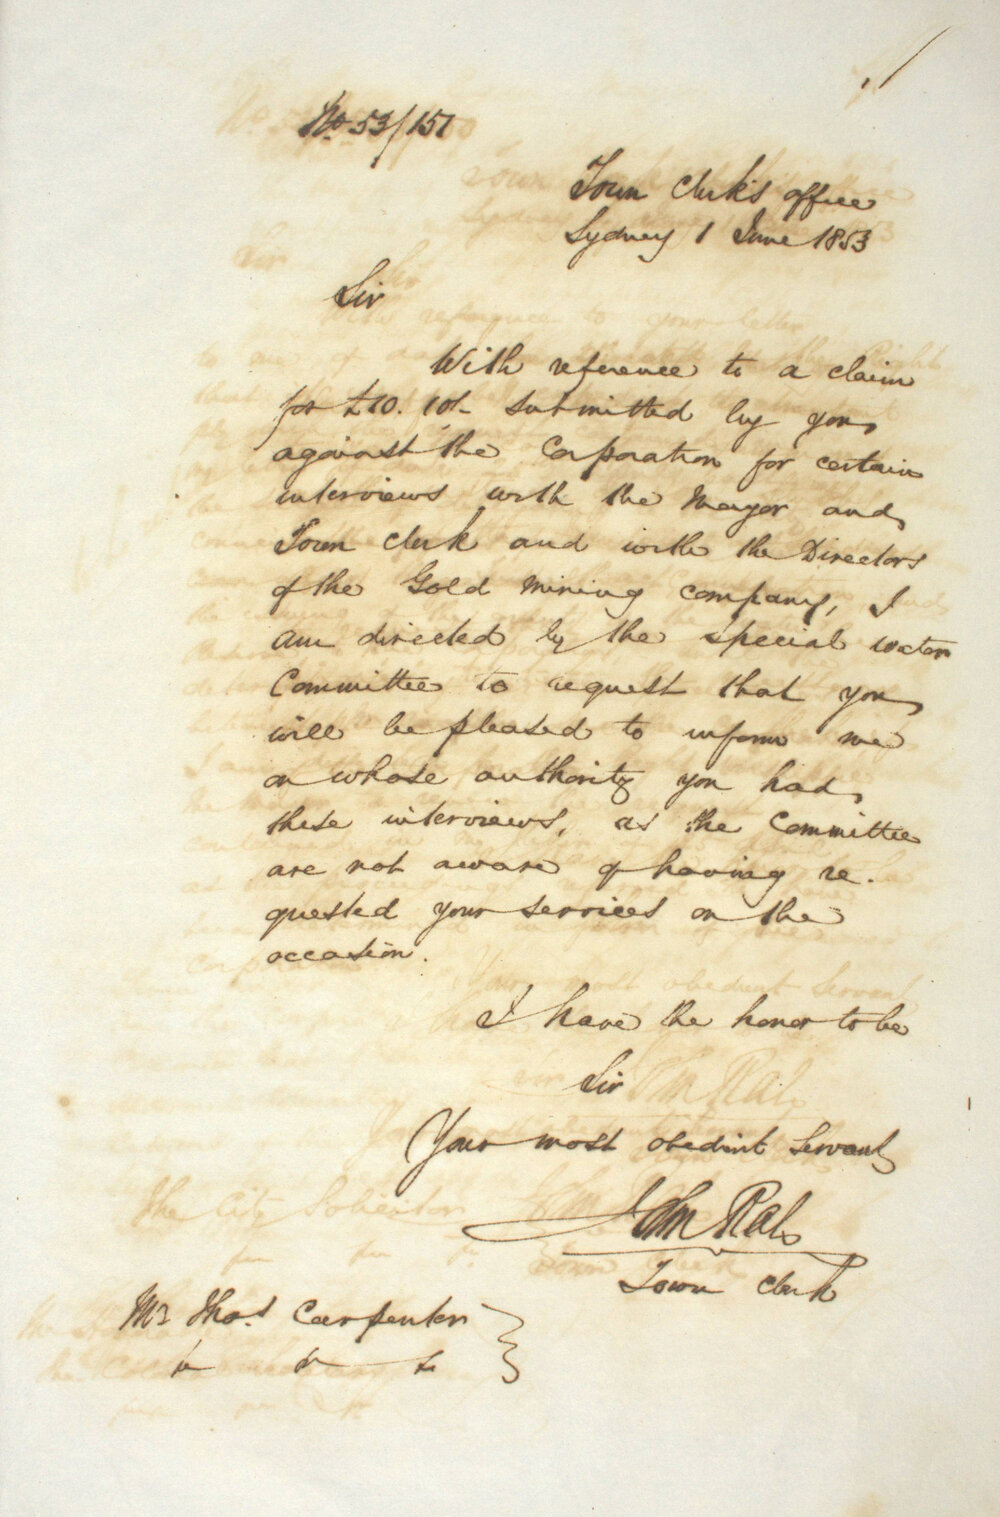 No. 53/151
Town Clerk's office
Sydney 1 June 1853
Sir
With reference to a claim
for £10. 10/- submitted by you
against the Corporation for certain
interviews with the Mayor and
Town Clerk and with the Directors
of the Gold Mining Company, I
am directed by the special water
Committee to request that you
will be pleased to inform me
on whose authority you had
these interviews, as the Committee
are not aware of having re-
quested your services on the
occasion.
I have the honor to be
Sir
Your most obedient Servant
John Rae
Town Clerk
Mr Thos. Carpenter